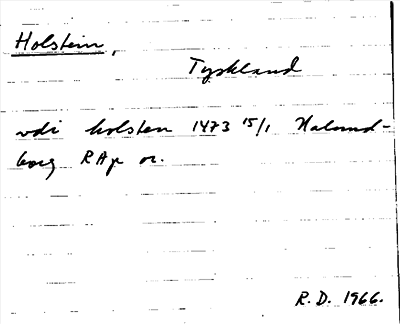 Holstein,
Tyskland
vdi holsten 1473 15/1 Halmd-
borg RAp or.
R.D. 1966.